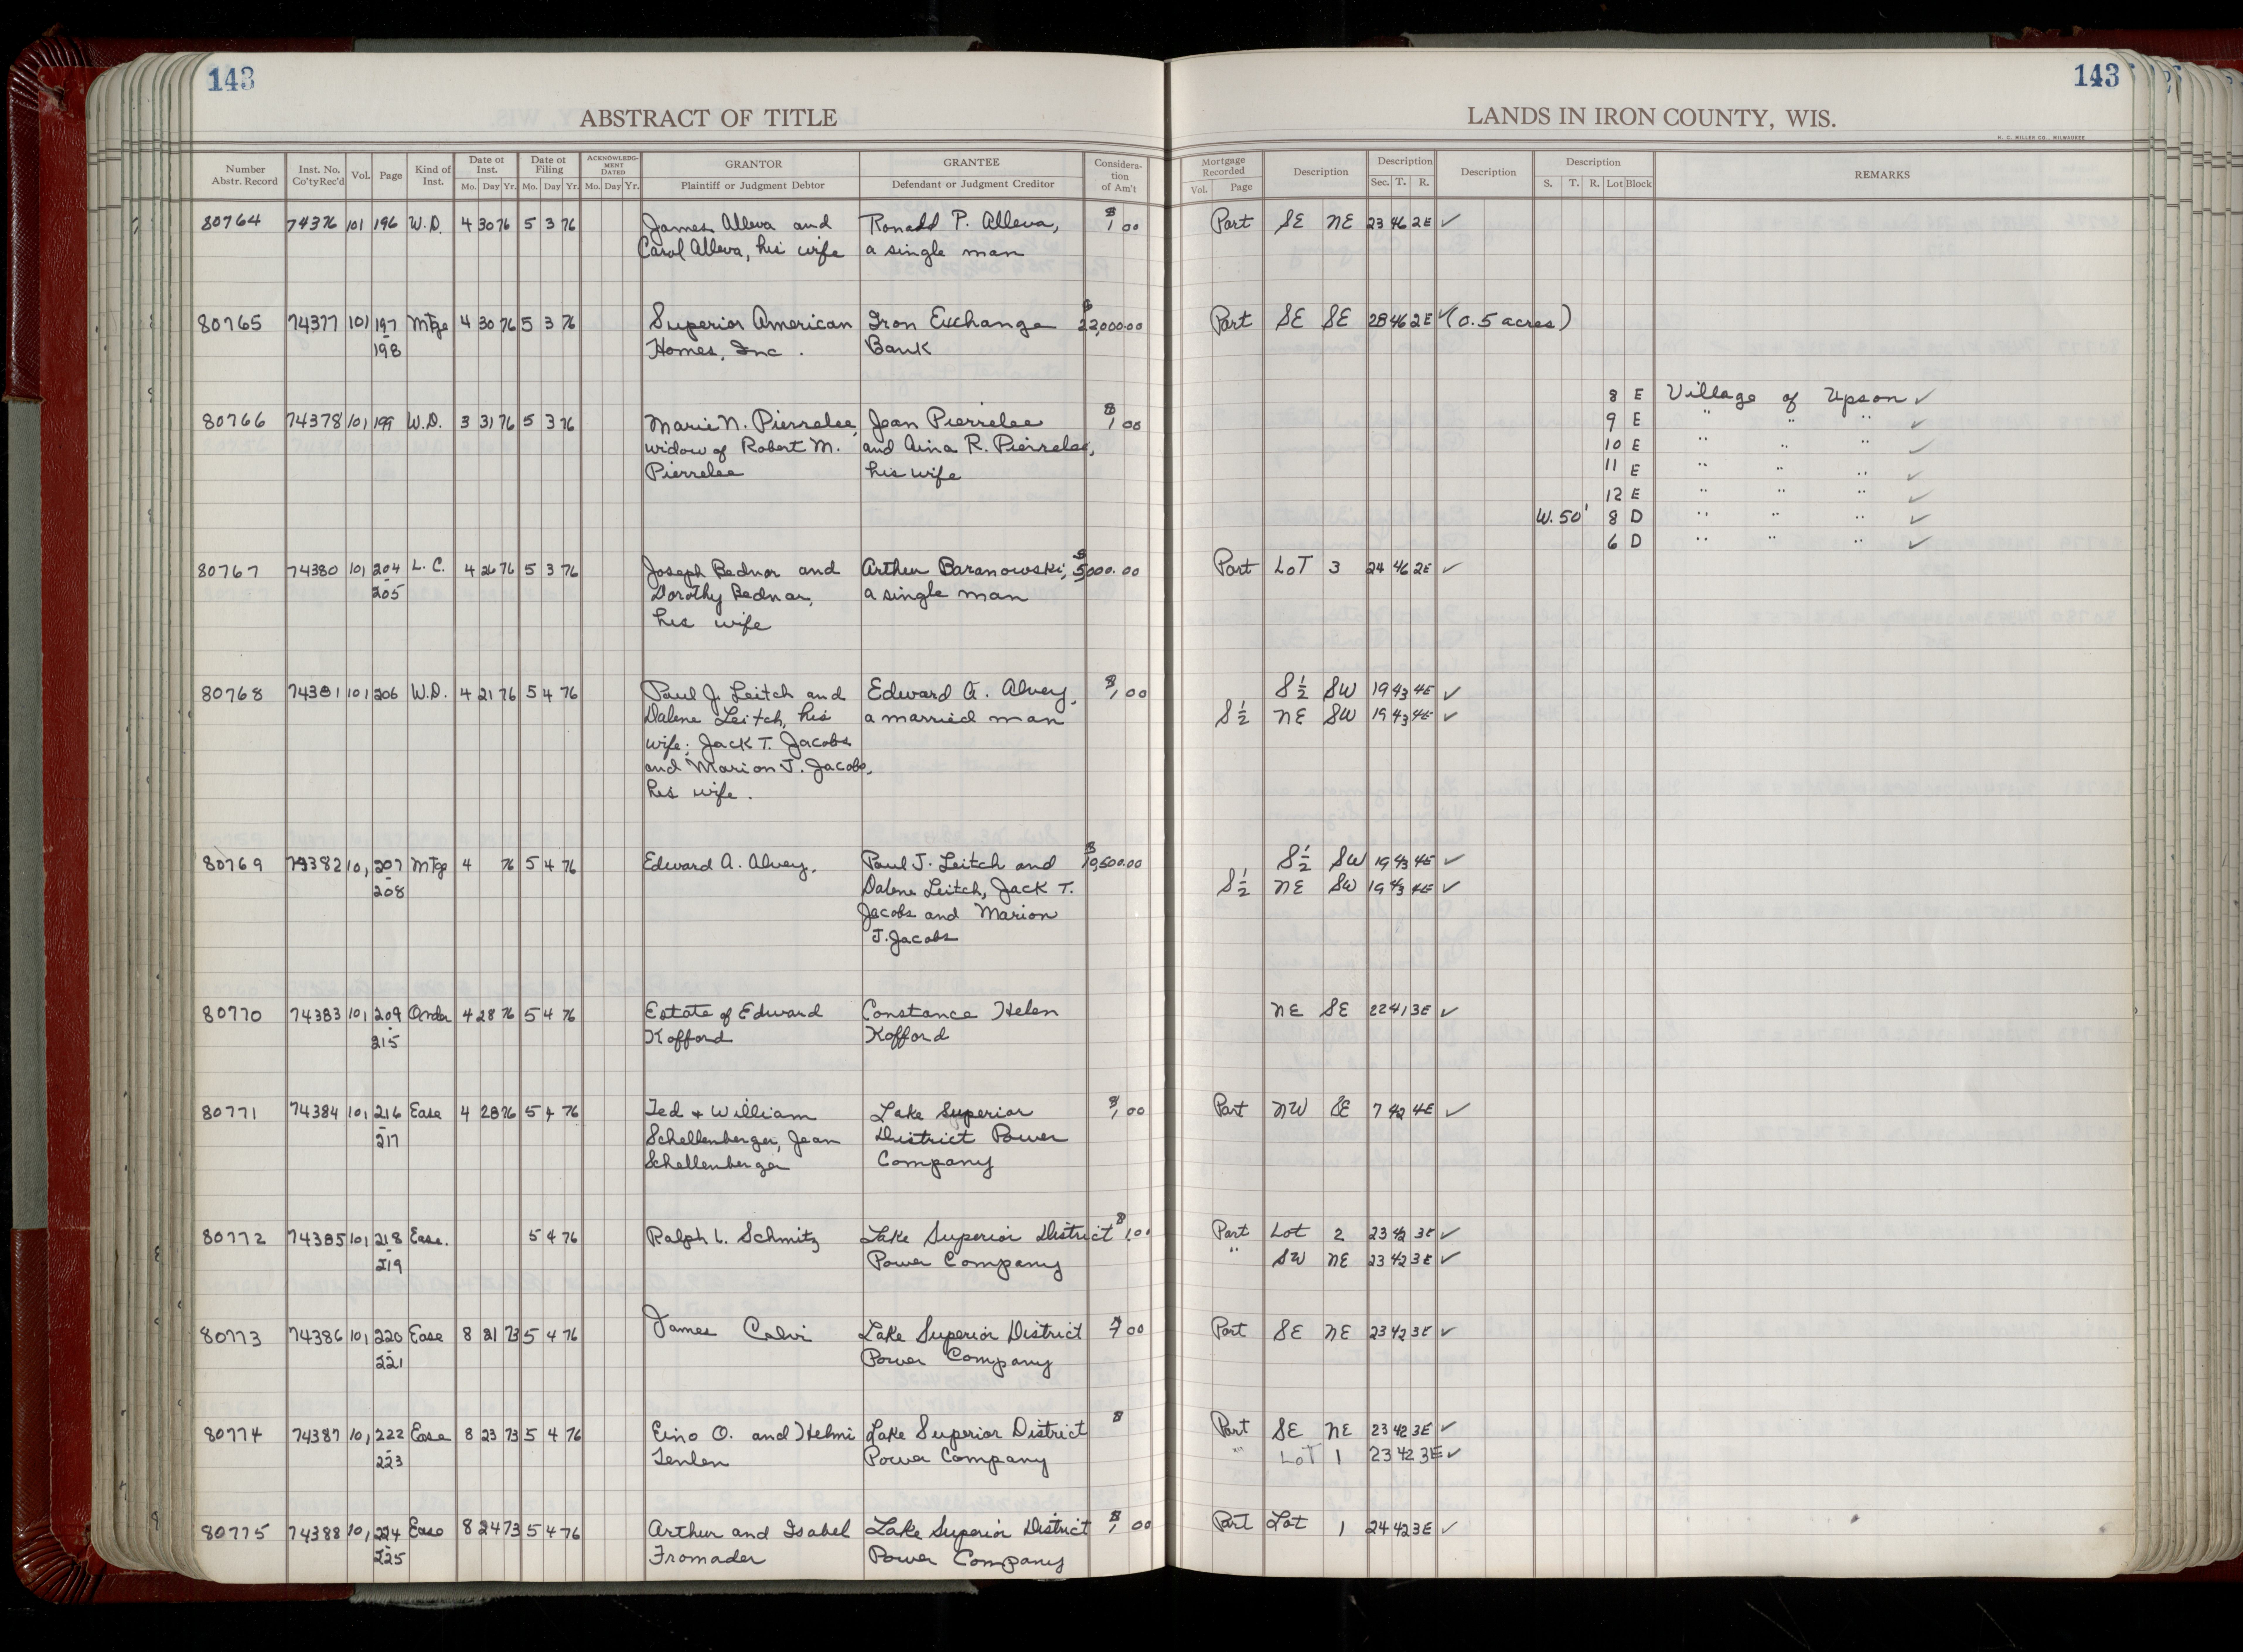 143
143
ABSTRACT OF TITLE
LANDS IN IRON COUNTY, WIS.
H. C. MILLER CO., MILWAUKEE
Number Abstr. Record | Inst. No. Co'ty Rec'd | Vol. | Page | Kind of Inst. | Date of Inst. Mo. Day Yr. | Date of Filing Mo. Day Yr. | ACKNOWLEDGMENT DATED Mo. Day Yr. | GRANTOR Plaintiff or Judgment Debtor | GRANTEE Defendant or Judgment Creditor | Consideration of Am't | Mortgage Recorded Vol. Page | Description | Description Sec. T. R. | Description | Description S. T. R. Lot Block | REMARKS
80764 74376 101 196 W.D. 4 30 76 5 3 76 James Alleva and Ronald P. Alleva, $1 00 Part SE NE 23 46 2E ✓
Carol Alleva, his wife a single man
80765 74377 101 197 Mtge 4 30 76 5 3 76 Superior American Iron Exchange $22,000.00 Part SE SE 28 46 2E ✓ (0.5 acres)
- 198 Homes, Inc. Bank
8 E Village of Upson ✓
80766 74378 101 199 W.D. 3 31 76 5 3 76 Marie N. Pierrelee, Jean Pierrelee $1 00 9 E " " " ✓
widow of Robert M. and Aina R. Pierrelee, 10 E " " " ✓
Pierrelee his wife 11 E " " " ✓
12 E " " " ✓
W. 50' 8 D " " " ✓
6 D " " " ✓
80767 74380 101 204 L.C. 4 26 76 5 3 76 Joseph Bednar and Arthur Baranowski, $5000.00 Part LOT 3 24 46 2E ✓
- 205 Dorothy Bednar, a single man
his wife
80768 74381 101 206 W.D. 4 21 76 5 4 76 Paul J. Leitch and Edward A. Alvey, $1 00 S½ SW 19 43 4E ✓
Dalene Leitch, his a married man S½ NE SW 19 43 4E ✓
wife; Jack T. Jacobs
and Marion J. Jacobs,
his wife.
80769 74382 101 207 Mtge 4 76 5 4 76 Edward A. Alvey. Paul J. Leitch and $10,500.00 S½ SW 19 43 4E ✓
- 208 Dalene Leitch, Jack T. S½ NE SW 19 43 4E ✓
Jacobs and Marion
J. Jacobs
80770 74383 101 209 Order 4 28 76 5 4 76 Estate of Edward Constance Helen NE SE 22 41 3E ✓
- 215 Kofford Kofford
80771 74384 101 216 Ease 4 28 76 5 4 76 Ted + William Lake Superior $1 00 Part NW SE 7 42 4E ✓
- 217 Schellenberger, Jean District Power
Schellenberger Company
80772 74385 101 218 Ease. 5 4 76 Ralph L. Schmitz Lake Superior District $1.00 Part Lot 2 23 42 3E ✓
- 219 Power Company " SW NE 23 42 3E ✓
80773 74386 101 220 Ease 8 21 73 5 4 76 James Calvi Lake Superior District 00 Part SE NE 23 42 3E ✓
- 221 Power Company
80774 74387 101 222 Ease 8 23 73 5 4 76 Eino O. and Helmi Lake Superior District $ Part SE NE 23 42 3E ✓
- 223 Tenlen Power Company " LOT 1 23 42 3E ✓
80775 74388 101 224 Ease 8 24 73 5 4 76 Arthur and Isabel Lake Superior District $1 00 Part Lot 1 24 42 3E ✓
- 225 Fromader Power Company